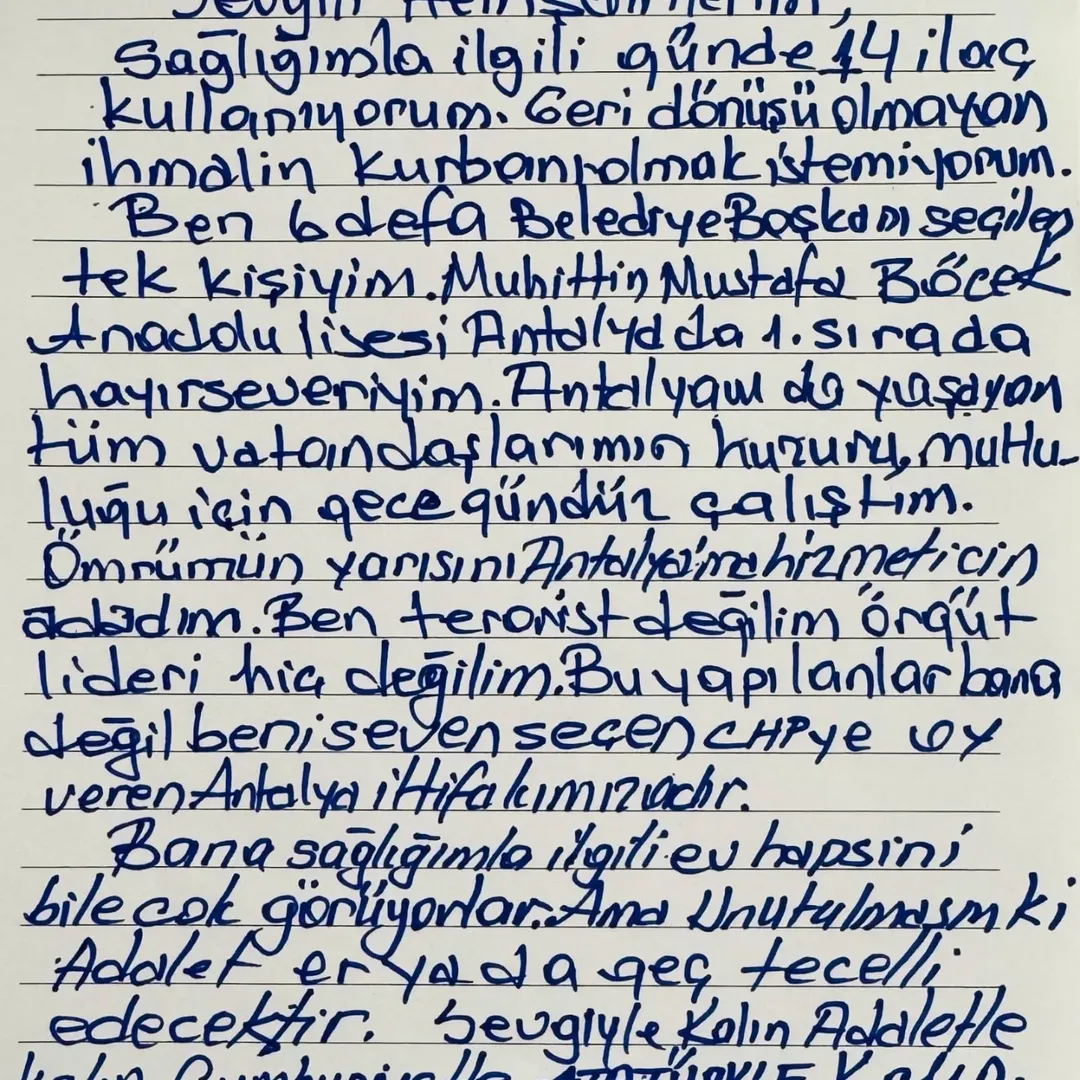 Sevgili Hemşehrilerim,
Sağlığımla ilgili günde 14 ilaç
kullanıyorum. Geri dönüşü olmayan
ihmalin kurbanı olmak istemiyorum.
Ben 6 defa Belediye Başkanı seçilen
tek kişiyim. Muhittin Mustafa Böcek
Anadolu lisesi Antalyada da 1. sırada
hayırseveriyim. Antalyam da yaşayan
tüm vatandaşlarımın huzuru, mutlu-
luğu için gece gündüz çalıştım.
Ömrümün yarısını Antalya'ma hizmet icin
adadım. Ben terörist değilim örgüt
lideri hiç değilim. Bu yapılanlar bana
değil beni seven seçen CHPye oy
veren Antalya ittifakımızadır.
Bana sağlığımla ilgili ev hapsini
bile cok görüyorlar. Ama Unutulmasın ki
Adalet er ya da geç tecelli
edecektir. Sevgiyle Kalın Adaletle
kalın Cumhuriyetle ATATÜRKLE KALIN.